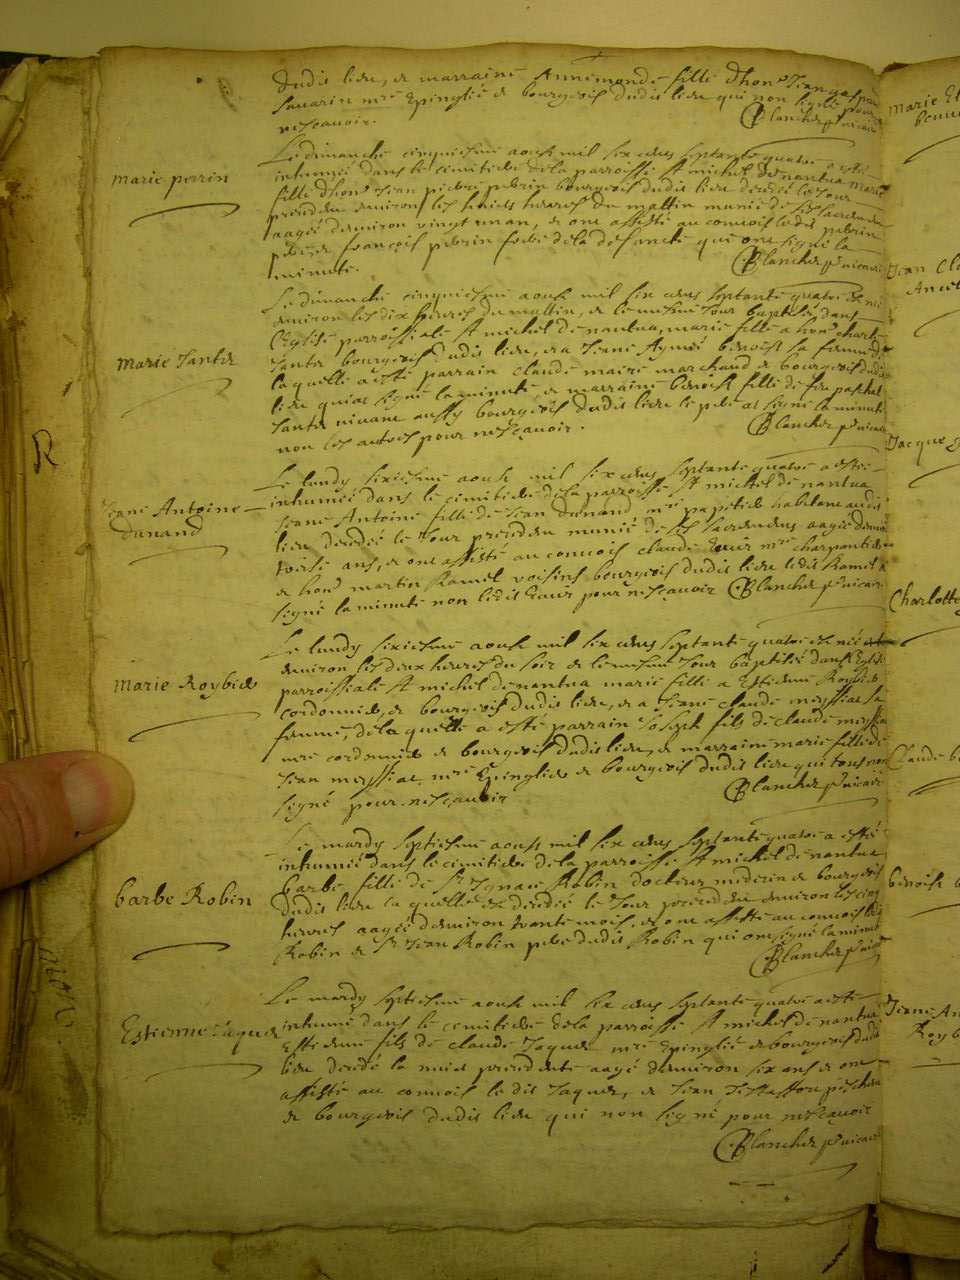 dudit lieu, et marraine Annemonde fille d'hon. Jean gaspar
Savarin mre Epinglié et bourgeois dudit lieu qui non signé pour
ne scavoir.
Blanchet pr vicaire
Marie perrin
Le dimanche cinquiesme aoust mil six cens septante quatre a esté
inhumée dans le cimitiere de la parroisse St michel de nantua Marie
fille d'hon. Jean pierre perrin bourgeois dudit lieu decedée le jour
precedent environ les huict heures du mattin munie de ses sacremens
aagée d'environ vingt un an, et ont assisté au convois ledit perrin
pere et françois perrin frere de la defuncte qui ont signé la
minute.
Blanchet pr vicaire
Marie Jantet
Le dimanche cinquiesme aoust mil six cens septante quatre est née
environ les dix heures du mattin, et le mesme jour baptisée dans
l'Eglise parroissiale St michel de nantua, marie fille a hon. charle
Jantet bourgeois dudit lieu, et a Jeane Aymée benoist sa femme de
laquelle a esté parrain claude maire marchand et bourgeois dudit
lieu qui a signé la minute et marraine benoiste fille de feu paschal
Jantet vivant aussy bourgeois dudit lieu le pere a signé la minute
non les autres pour ne scavoir.
Blanchet pr vicaire
Jeane Antoine
Dunand
Le lundy sixiesme aoust mil six cens septante quatre a esté
inhumée dans le cimitiere de la parroisse St michel de nantua
Jeane Antoine fille de Jean Dunand mre papetier habitant audit
lieu decedée le jour precedent munie de ses sacremens aagée d'environ
treise ans, et ont assisté au convois claude mre charpentier
et hon. martin Ramel voisins bourgeois dudit lieu ledit Ramel a
signé la minute non ledit pour ne scavoir Blanchet pr vicaire
Marie Roybier
Le lundy sixiesme aoust mil six cens septante quatre est née
environ les deux heures du soir et le mesme jour baptisée dans l'Eglise
parroissiale St michel de nantua marie fille a Estienne Roybier
cordonnier, et bourgeois dudit lieu, et a Jeane claude meyssiat sa
femme, de laquelle a esté parrain Joseph fils de claude meyssiat
mre cordonnier et bourgeois dudit lieu, et marraine marie fille de
Jean meyssiat mre Epinglier et bourgeois dudit lieu qui tous non
signé pour ne scavoir
Blanchet pr vicaire
barbe Robin
Le mardy septiesme aoust mil six cens septante quatre a esté
inhumée dans le cimitiere de la parroisse St michel de nantua
barbe fille de Sr Ignace Robin docteur medecin et bourgeois
dudit lieu laquelle est decedée le jour precedent environ les cinq
heures aagée d'environ trente mois, et ont assisté au convois ledit
Robin et Sr Jean Robin pere dudit Robin qui ont signé la minute
Blanchet pr vicaire
Estienne Jaquet
Le mardy septiesme aoust mil six cens septante quatre a esté
inhumé dans le cimitiere de la parroisse St michel de nantua
Estienne fils de claude Jaquet mre Epinglié et bourgeois dudit
lieu decedé la nuict precedente aagé d'environ six ans et ont
assisté au convois ledit Jaquet, et Jean
et bourgeois dudit lieu qui non signé pour ne scavoir
Blanchet pr vicaire
R
Marie
Jean Cl
Jacque
Charlotte
Claude b
benoist
Jeane An
Royb